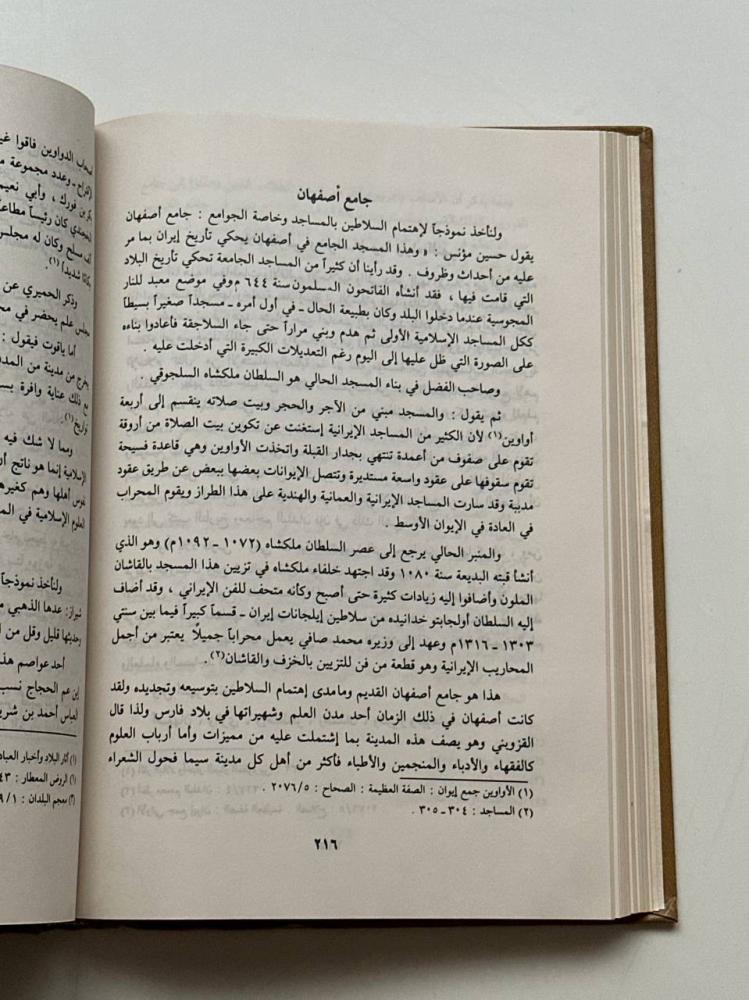 جامع أصفهان
ولنأخذ نموذجاً لإهتمام السلاطين بالمساجد وخاصة الجوامع : جامع أصفهان
يقول حسين مؤنس : « وهذا المسجد الجامع في أصفهان يحكي تأريخ إيران بما مر
عليه من أحداث وظروف . وقد رأينا أن كثيراً من المساجد الجامعة تحكي تأريخ البلاد
التي قامت فيها ، فقد أنشأه الفاتحون المسلمون سنة ٦٤٤ م وفي موضع معبد للنار
المجوسية عندما دخلوا البلد وكان بطبيعة الحال ـ في أول أمره ـ مسجداً صغيراً بسيطاً
ككل المساجد الإسلامية الأولى ثم هدم وبني مراراً حتى جاء السلاجقة فأعادوا بناءه
على الصورة التي ظل عليها إلى اليوم رغم التعديلات الكبيرة التي أدخلت عليه .
وصاحب الفضل في بناء المسجد الحالي هو السلطان ملكشاه السلجوقي .
ثم يقول : والمسجد مبني من الآجر والحجر وبيت صلاته ينقسم إلى أربعة
أواوين(١) لأن الكثير من المساجد الإيرانية إستغنت عن تكوين بيت الصلاة من أروقة
تقوم على صفوف من أعمدة تنتهي بجدار القبلة واتخذت الأواوين وهي قاعدة فسيحة
تقوم سقوفها على عقود واسعة مستديرة وتتصل الإيوانات بعضها ببعض عن طريق عقود
مدببة وقد سارت المساجد الإيرانية والعمانية والهندية على هذا الطراز ويقوم المحراب
في العادة في الإيوان الأوسط .
والمنبر الحالي يرجع إلى عصر السلطان ملكشاه (١٠٧٢ ـ ١٠٩٢م) وهو الذي
أنشأ قبته البديعة سنة ١٠٨٠ وقد اجتهد خلفاء ملكشاه في تزيين هذا المسجد بالقاشان
الملون وأضافوا إليه زيادات كثيرة حتى أصبح وكأنه متحف للفن الإيراني ، وقد أضاف
إليه السلطان أولجايتو خدابنده من سلاطين إيلجانات إيران ـ قسماً كبيراً فيما بين سنتي
١٣٠٣ ـ ١٣١٦م وعهد إلى وزيره محمد صافي يعمل محراباً جميلاً يعتبر من أجمل
المحاريب الإيرانية وهو قطعة من فن للتزيين بالخزف والقاشان(٢).
هذا هو جامع أصفهان القديم ومامدى إهتمام السلاطين بتوسيعه وتجديده ولقد
كانت أصفهان في ذلك الزمان أحد مدن العلم وشهيراتها في بلاد فارس ولذا قال
القزويني وهو يصف هذه المدينة بما إشتملت عليه من مميزات وأما أرباب العلوم
كالفقهاء والأدباء والمنجمين والأطباء فأكثر من أهل كل مدينة سيما فحول الشعراء
(١) الأواوين جمع إيوان : الصفة العظيمة : الصحاح : ٢٠٧٦/٥ .
(٢) المساجد : ٣٠٤ ـ ٣٠٥ .
٢١٦
صحاب الدواوين فاقوا
ـ وعدد مجموعة
بكر بن فورك ، وأبي نعيم
كان رئيساً
مسلح وكان له مجلس
شديداً (١).
وذكر الحميري عن
مجلس علم يحضر في
أما ياقوت فيقول :
يخرج من مدينة من
مع ذلك عناية وافرة
ومما لا شك فيه
الإسلامية إنما هو ناتج أن
نفوس أهلها وهم كغيرهم
العلوم الإسلامية في
ولنأخذ نموذجاً
شيراز: عدها الذهبي
وحديثها قليل وقل من
أحد عواصم هذه
ابن عم الحجاج
العباس أحمد بن
(١) آثار البلاد وأخبار
(١) الروض المعطار :
(٢) معجم البلدان :